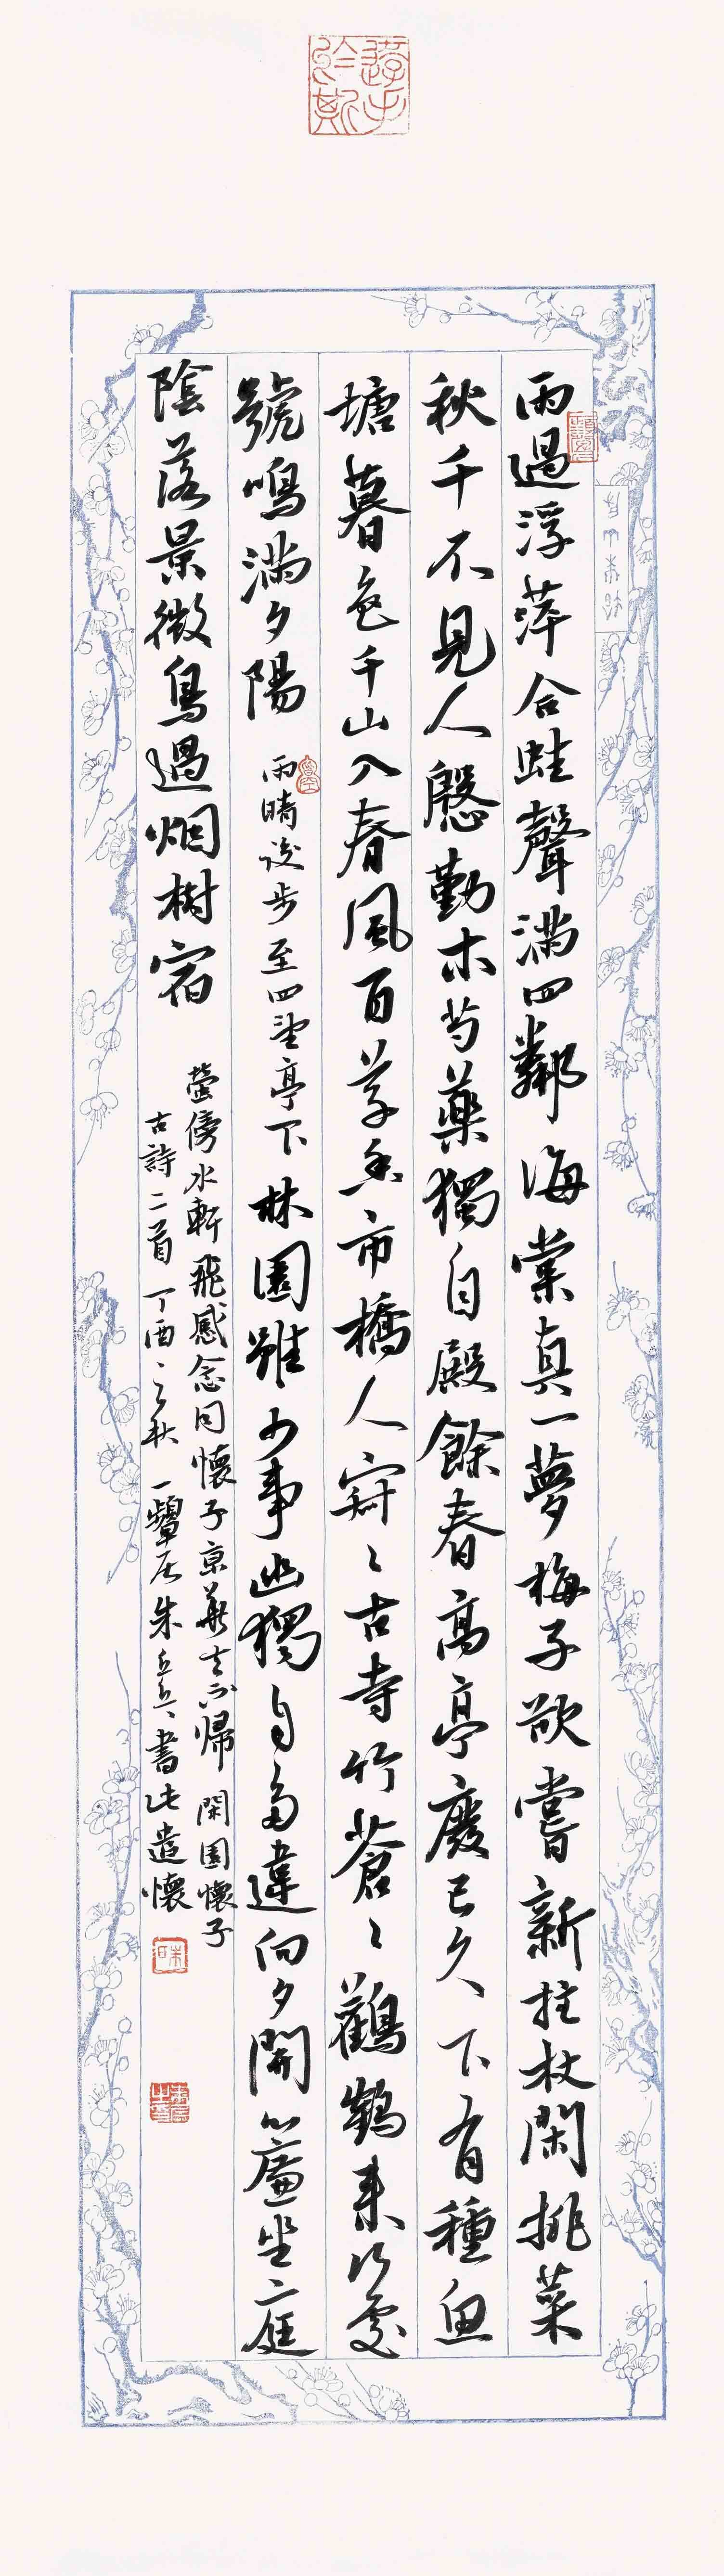 雨過浮萍合蛙聲滿四鄰海棠真一夢梅子欲嘗新拄杖閑挑菜
秋千不見人殷勤木芍藥獨自殿餘春高亭廢已久下有種魚
塘暮色千山入春風百草香市橋人寂〻古寺竹蒼〻鸛鶴來何處
號鳴滿夕陽
雨晴後步至四望亭下
林園雖少事幽獨自多違向夕開簾坐庭
陰落景微鳥過煙樹宿
螢傍水軒飛感念同懷子京華去不歸 閑園懷子
古詩二首丁酉之秋一顰居朱立兵書此遣懷
游于斯